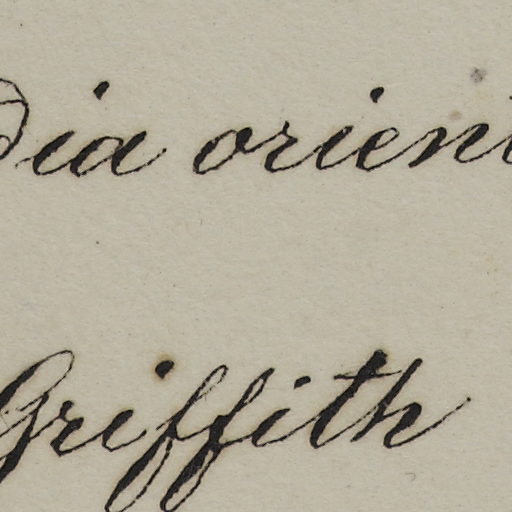 dia orient
Griffith